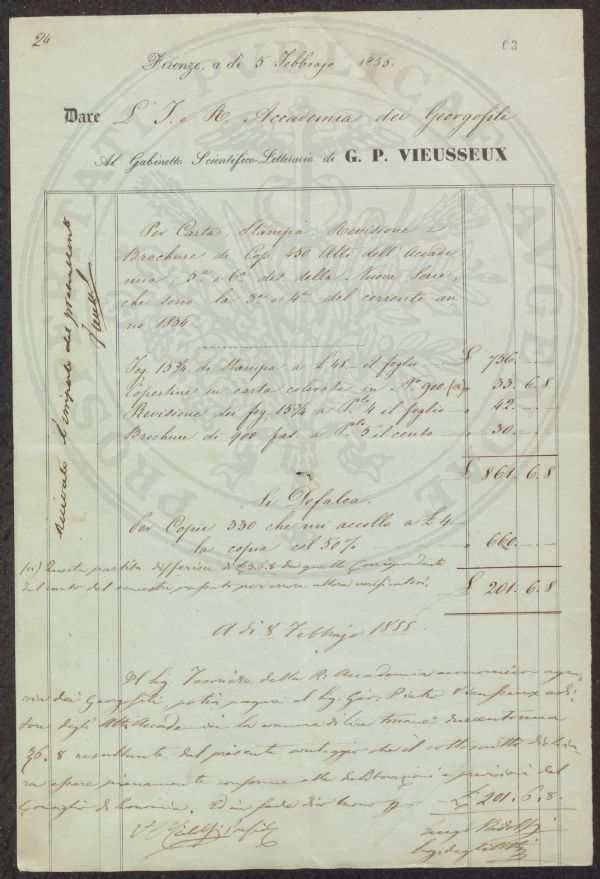 24
63
Firenze, a dì 5 Febbrajo 1855.
Dare L' I. e R. Accademia dei Georgofili
Al Gabinetto Scientifico-Letterario di G. P. VIEUSSEUX
Per Carta, Stampa, Revisione e
Brochure di Cop. 450 Atti dell'Accade-
mia, 5.ª e 6.ª dis della Nuova Serie,
che sono la 3.ª e 4.ª del corrente an-
no 1854
Fog. 15¾ di Stampa a £ 48 - il foglio - £ 756. -
Copertine in carta colorata in N.º 900. (a) " 33. 6. 8
Revisione dei fog. 15¾ a P. 4 il foglio - " 42. -
Brochure di 400 fas. a P. 5 il cento - " 30. -
£ 861. 6. 8
Si Defalca.
Per Copie 330 che mi accollo a £ 4 -
la copia col 50% - " 660. -
(a) Questa partita differisce di £ da quella corrispondente
del conto del semestre passato per errore allora verificatosi.
£ 201. 6. 8
A dì 8 Febbrajo 1855
Il Sig. Tesoriere della R. Accademia economico-agra-
ria dei Georgofili potrà pagare al Sig. Gio. Pietro Vieusseux edi-
tore degli Atti Accademici la somma di lire toscane duecentouna
6. 8 resultante dal presente conteggio che il sottoscritto dichia-
ra essere pienamente conforme alle deliberazioni e previsioni del
Consiglio di Economia. Ed in fede dico buono per £ 201. 6. 8.
V.º Ridolfi
Luigi Ridolfi
Seg. degli Atti
ricevuto l'importo del presente conto
Vieusseux
PROSPERITATI PUBLICAE AUGENDAE